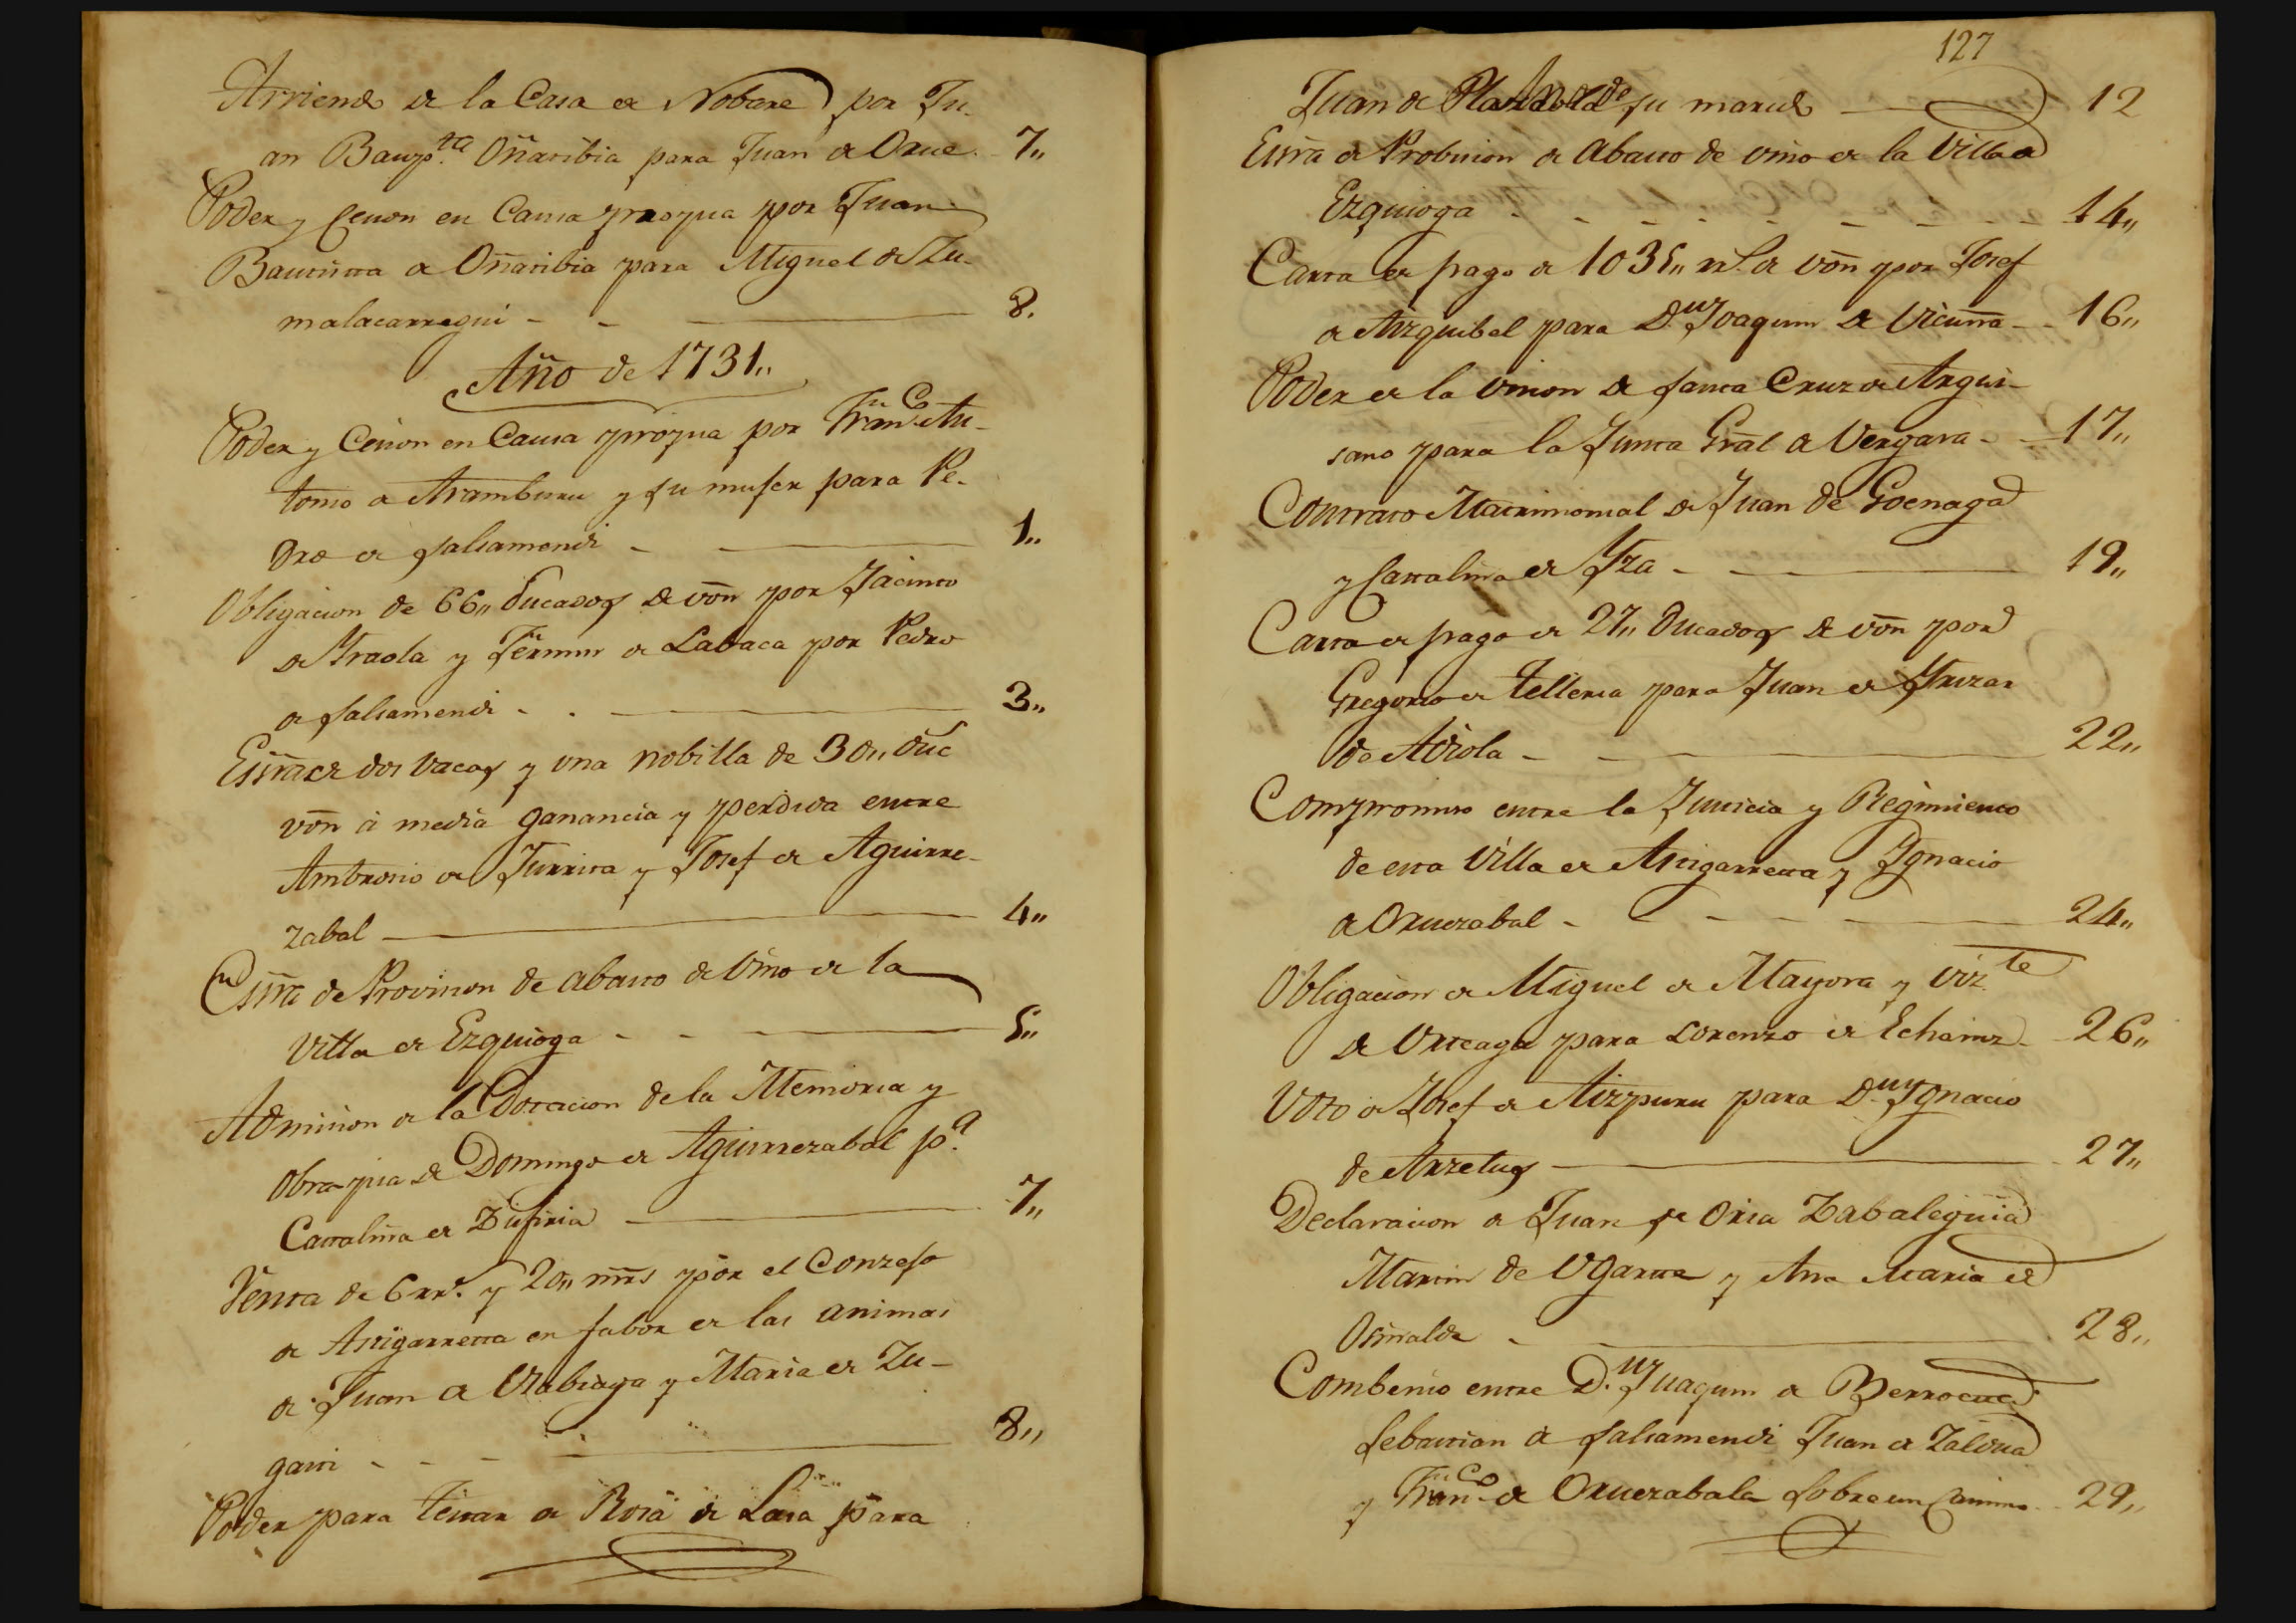 Arriendo de la Casa de Nobare por Ju-
an Baup.ta Oñaribia para Juan de Orue. 7,,
Poder y Cesion en Causa propia por Juan
Bautista de Oñaribia para Miguel de Zu-
malacarregui - - 8.
Año de 1731,,
Poder y Cesion en Causa propia por Fran.co An-
tonio de Aramburu y su mujer para Pe-
dro de Salsamendi - 1,,
Obligacion de 66,, Ducados de von por Jacinto
de Yraola y Fermin de Labaca por Pedro
de Salsamendi - . 3,,
Essra de dos Vacas y una nobilla de 30,, duc
von á media ganancia y perdida entre
Ambrosio de Iturrita y Josef de Aguirre-
zabal 4,,
Essra de Provision de abasto de Vino de la
Villa de Ezquioga - - 5,,
Admision de la Dotacion de la Memoria y
Obra pia de Domingo de Aguirrezabal p.a
Catalina de 7,,
Venta de 6 rr.s y 20,, mrs por el Conzejo
de Astigarreta en fabor de las animas
de Juan de Urabiaga y Maria de Zu-
gasti - - - 8,,
Poder para testar de Rosa de Lasa para
127
Juan de su marido 12
Essra de Probision de abasto de vino de la Villa de
Ezquioga - - - - - - - - 14,,
Carta de pago de 1035,, rr.s de von por Josef
de Aizquibel para D.n Joaquin de Vicuña - - 16,,
Poder de la union de Santa Cruz de Argui-
sano para la Junta Gral de Vergara - - 17,,
Contrato Matrimonial de Juan de Goenaga
y Catalina de Yza - 19,,
Carta de pago de 27,, Ducados de von por
Gregorio de Telleria para Juan de Yrizar
de Adiola - 22,,
Compromiso entre la Justicia y Regimiento
de esta Villa de Astigarreta y Ygnacio
de Oruezabal - - - - - 24,,
Obligacion de Miguel de Mayora y Viz.te
de Urteaga para Lorenzo de Echaniz - 26,,
Voto de Josef de Aizpuru para D.n Ygnacio
de Arzelus 27,,
Declaracion de Juan de Oria Zabaleguia
Martin de Ugarte y Ana Maria de
Osinalde - 28,,
Combenio entre D.n Juaquin de Berroeta
Sebastian de Salsamendi Juan de Zaldua
y Fran.co de Oruezabala sobre un Camino - 29,,